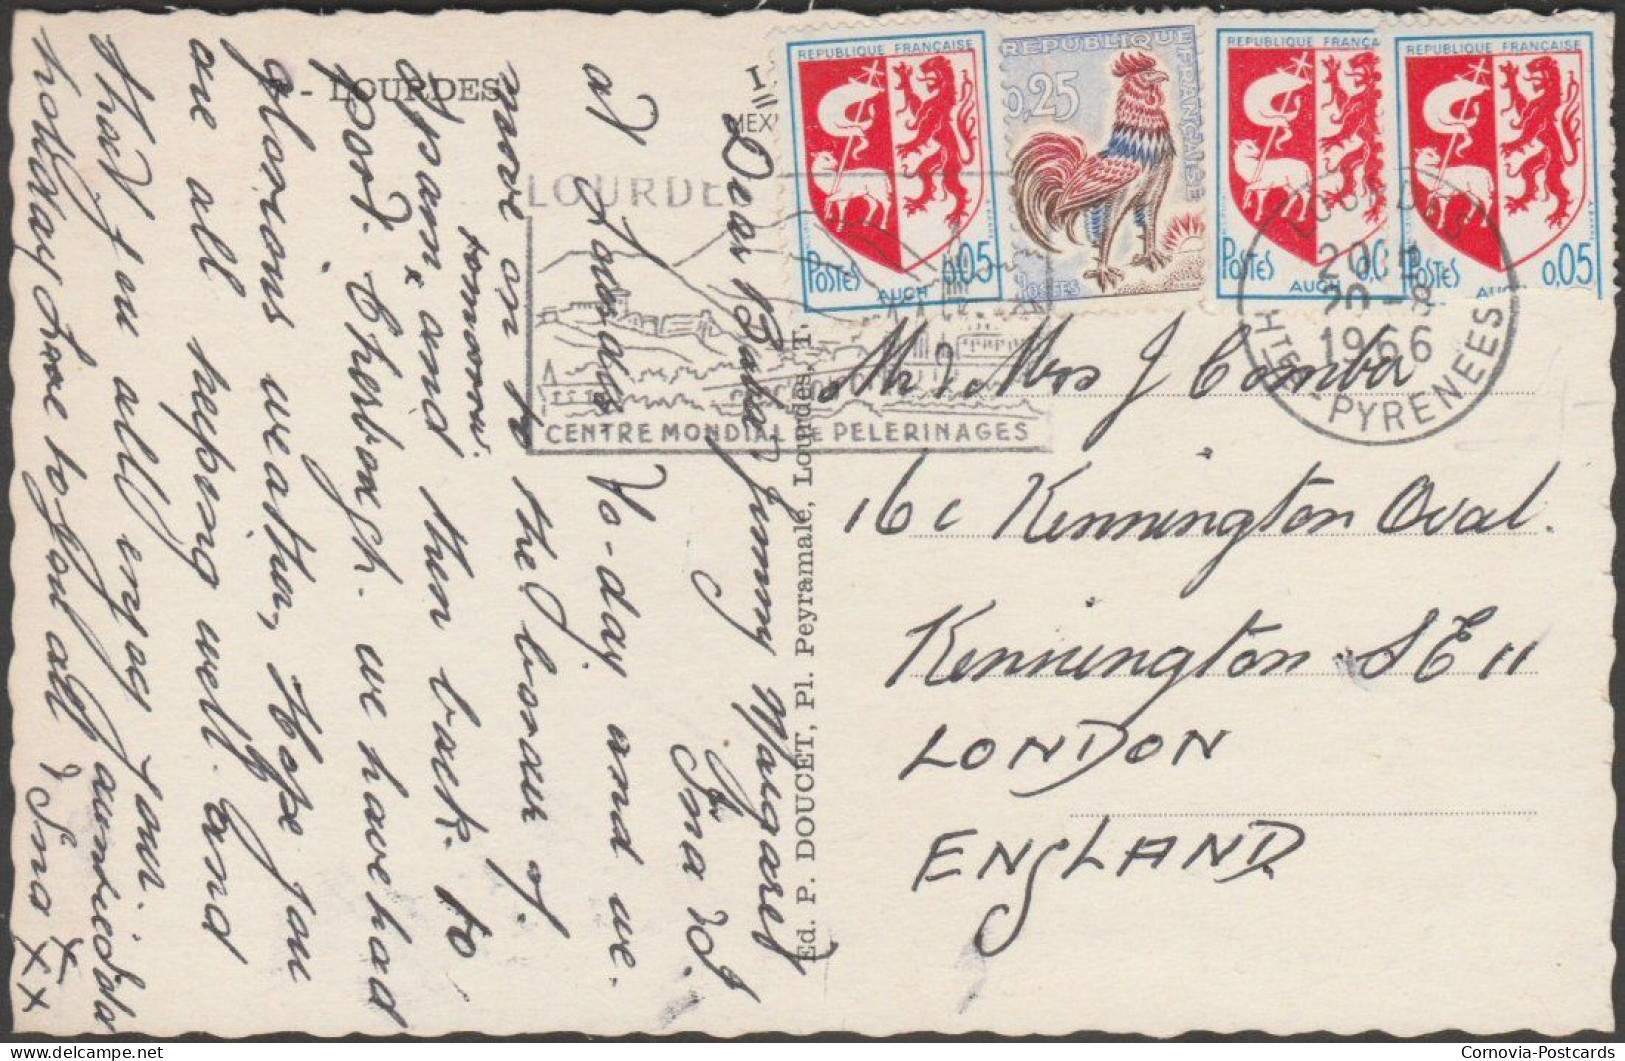 LOURDES
Dear Babs Jimmy Margaret
Ina
at Lourdes to-day and we
move on to the border of
tomorrow.
Spain and then back to
port Cherbough. we have had
glorious weather, Hope you
are all keeping well. and
that you all enjoy your
holiday Love to you all
auntie Ida
Ina
XXX
Ed. P. DOUCET, Pl. Peyramale, Lourdes. T.
LOURDES
CENTRE MONDIAL DE PELERINAGES
REPUBLIQUE FRANÇAISE
POSTES
AUCH
0,05
REPUBLIQUE FRANÇAISE
0,25
POSTES
REPUBLIQUE FRANÇA
POSTES
AUCH
0,0
REPUBLIQUE FRANÇAISE
POSTES
0,05
LOURDES
20 -8
1966
HTES-PYRENEES
Mr & Mrs J Comba
16c Kennington Oval.
Kennington SE 11
LONDON
ENGLAND
Cornovia-Postcards